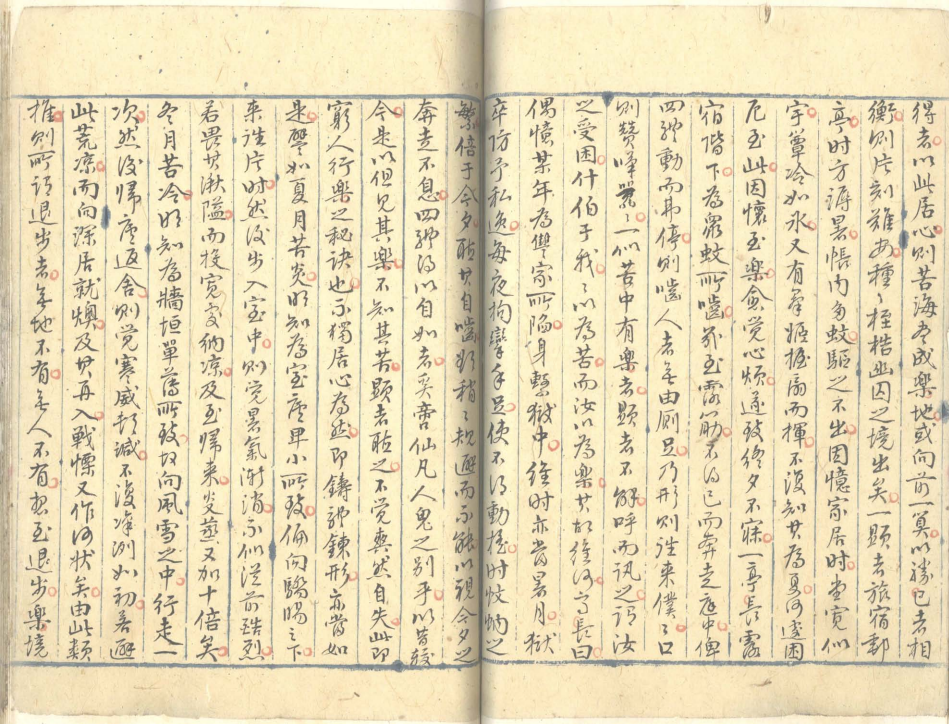 得者以此居心則苦海尽成樂地或向前一算以勝己者相
衡則片刻难安種〻桎梏幽囚之境出矣一顯者旅宿郵
亭时方溽暑帳內多蚊驱之不出因憶家居时堂寬似
宇簟冷如氷又有羣姬握扇而揮不復知其為夏何遽困
厄至此因懷至樂愈覚心煩遂致终夕不寐一亭長露
宿階下為眾蚊所嚙幾至露筋不得已而奔走庭中俾
四体動而弗停則嚙人者无由厠足乃形則往來僕〻口
則赞嘆囂〻一似苦中有楽者顯者不解呼而訊之謂汝
之受困什伯于我〻以為苦而汝以為楽其故維何亭長曰
偶憶某年為讐家所陥身繫獄中維时亦當暑月獄
卒防予私逸每夜拘攣手足使不得動摇时蚊蚋之
繁倍于今夕聴其自嚙欲稍〻規避而不能以視今夕之
奔走不息四体得以自如者奚啻仙凡人鬼之别乎以昔較
今是以但見其楽不知其苦顕者聴之不覚爽然自失此即
窮人行楽之秘訣也不獨居心為然即鋳体錬形亦當如
是譬如夏月苦炎明知為室廬卑小所致偏向驕陽之下
来往片时然後步入室中則覚暑氣漸消不似從前酷烈
若畏其湫隘而投寛處納凉及至帰来炎蒸又加十倍矣
冬月苦冷明知為牆垣單薄所致故向風雪之中行走一
次然後帰廬返舍則觉寒威頓减不復凜冽如初若避
此荒凉而向深居就燠及其再入戦慄又作何状矣由此類
推則所謂退步者无地不有无人不有想至退步楽境